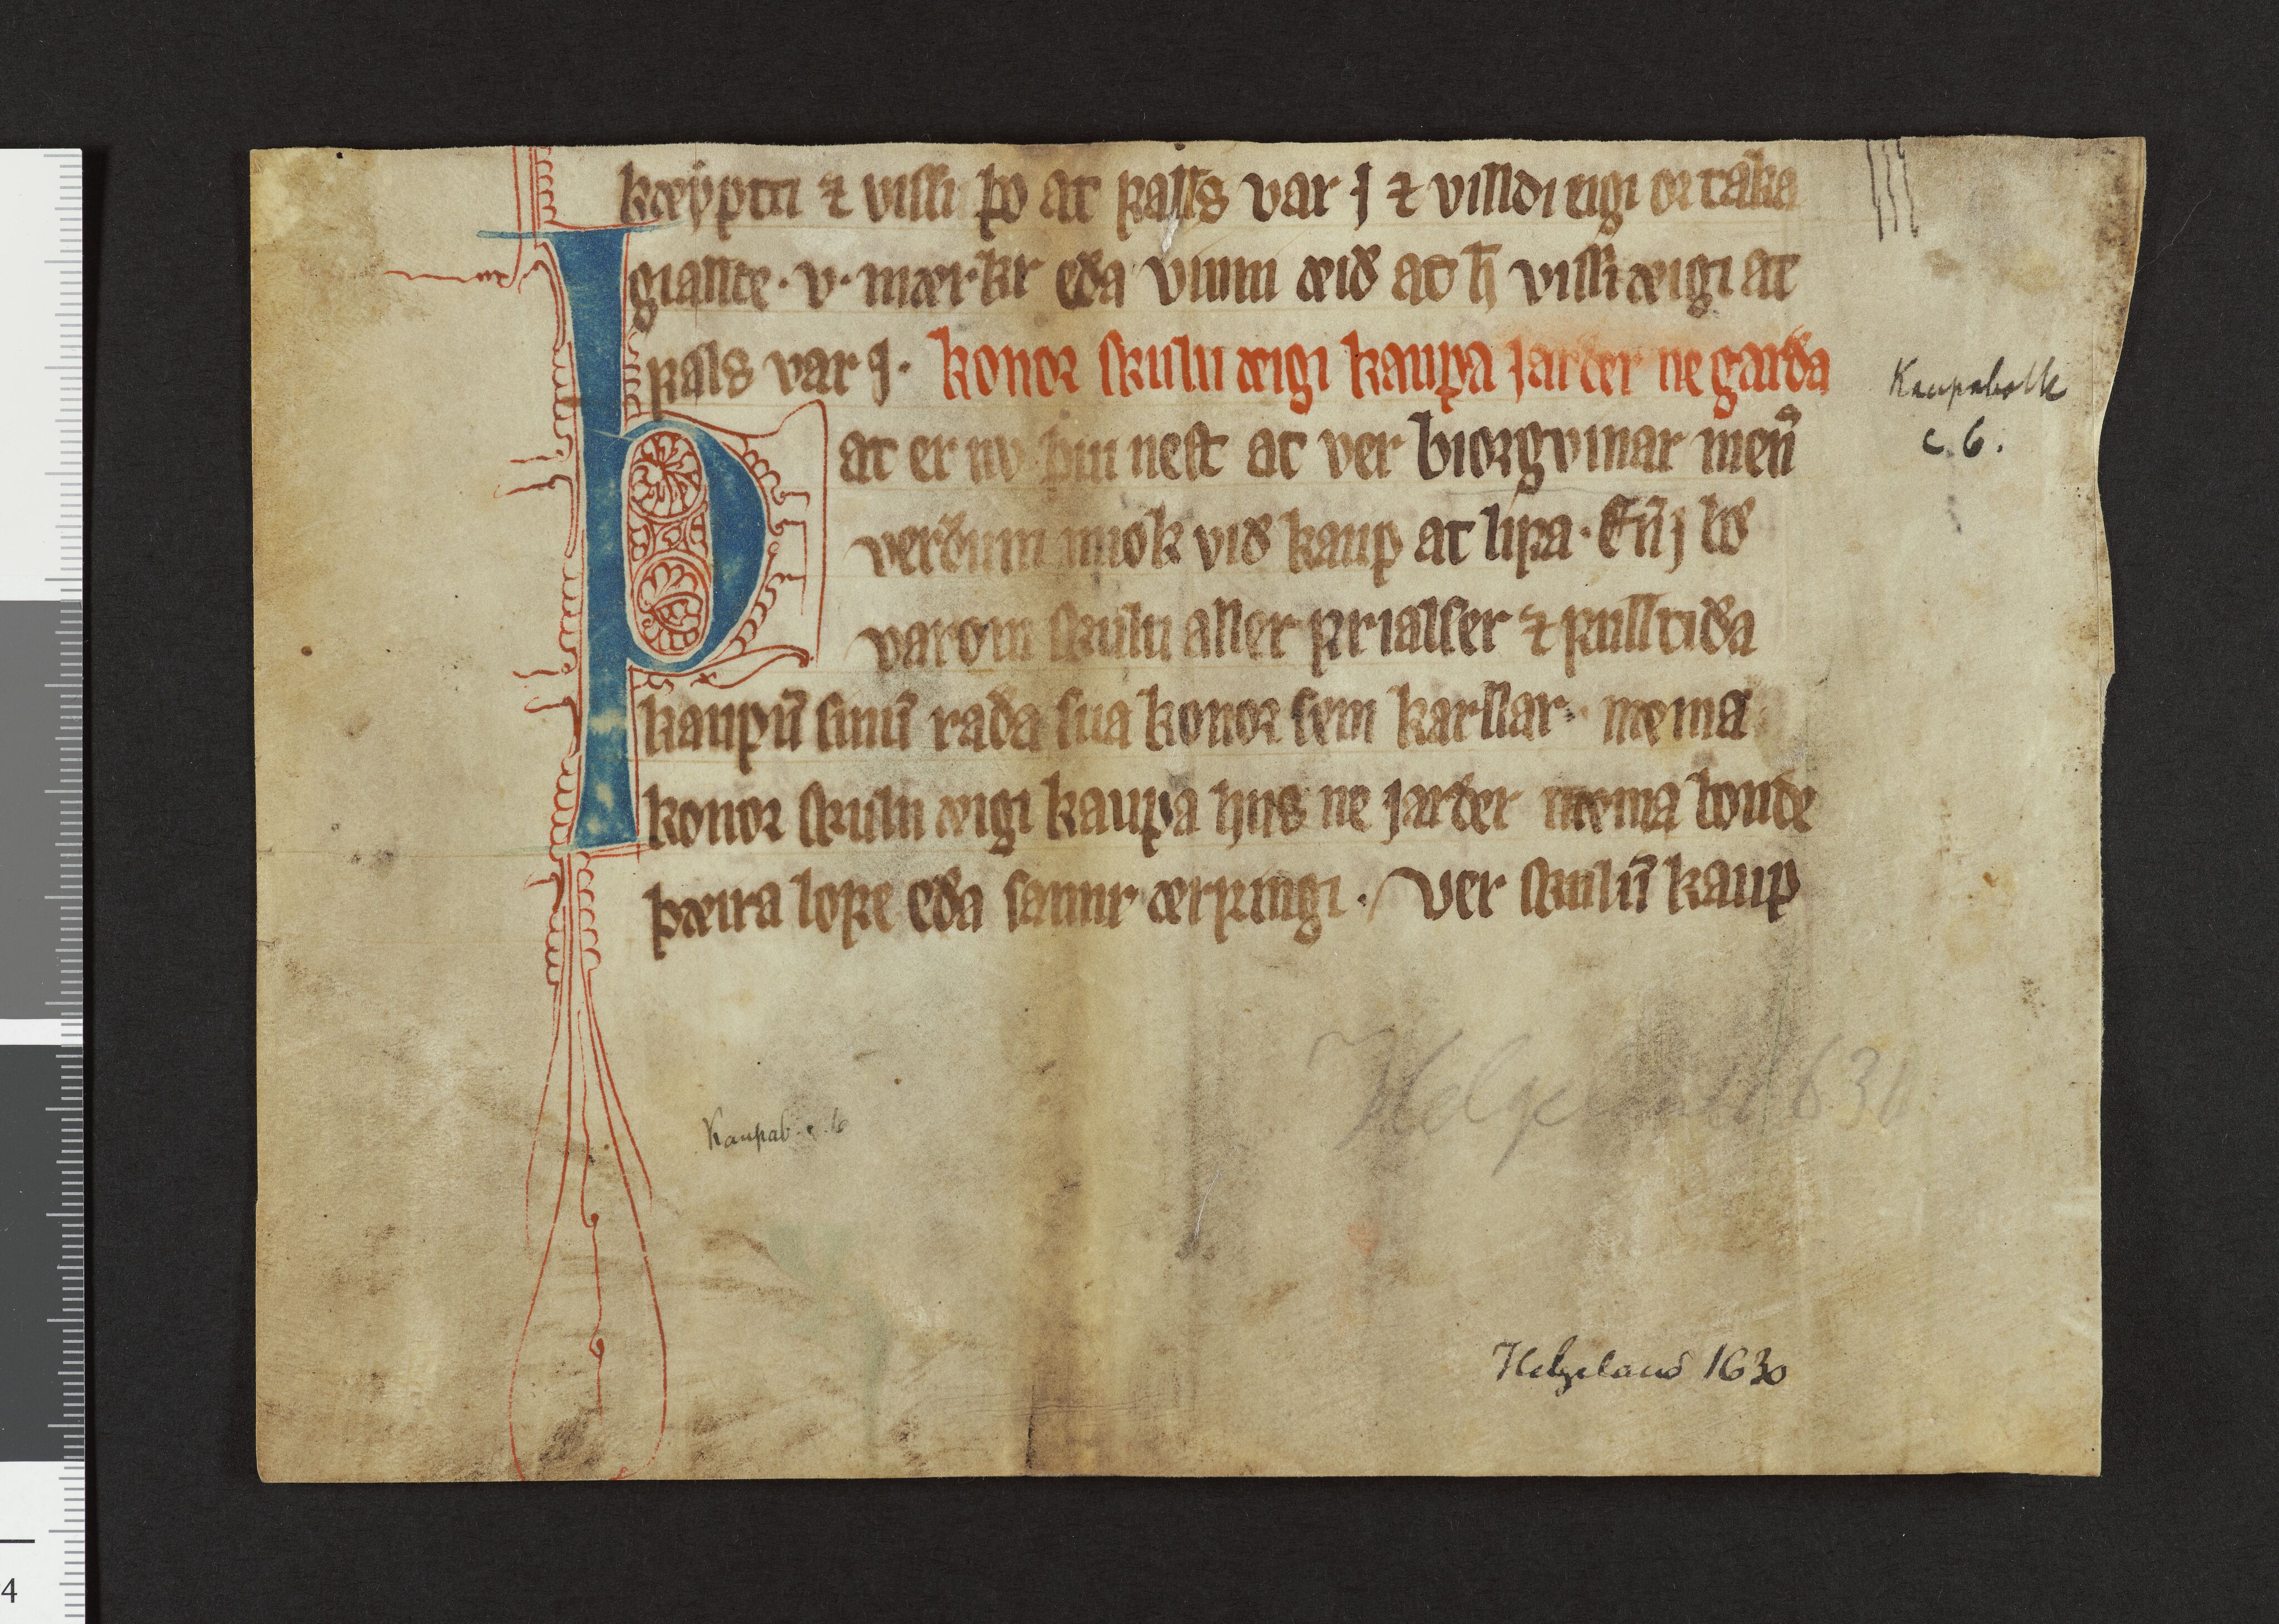 kœyptti ⁊ vissi þo at fals var j ⁊ villdi eigi or taka
giallde · v · mærkr eða vinni æið at h̄ vissi æigi at
fals var j · konor skulu æigi kaupa jarðer ne garða
Kaupabolk
c. 6.
Þat er nv þui nest at ver biorgvinar menn̄
verðum miok við kaup at lifa · En̄ j bœ
varom skulu aller frialser ⁊ fulltiða
kaupū sinū raða sua konor sem karllar · næma
konor skulu æigi kaupa hus ne jarðer næma bonde
þæira lofe eða sannr ærfingi · Ver skulū kaup
Kaupab. c. 6
Helgeland 1630
Helgeland 1630